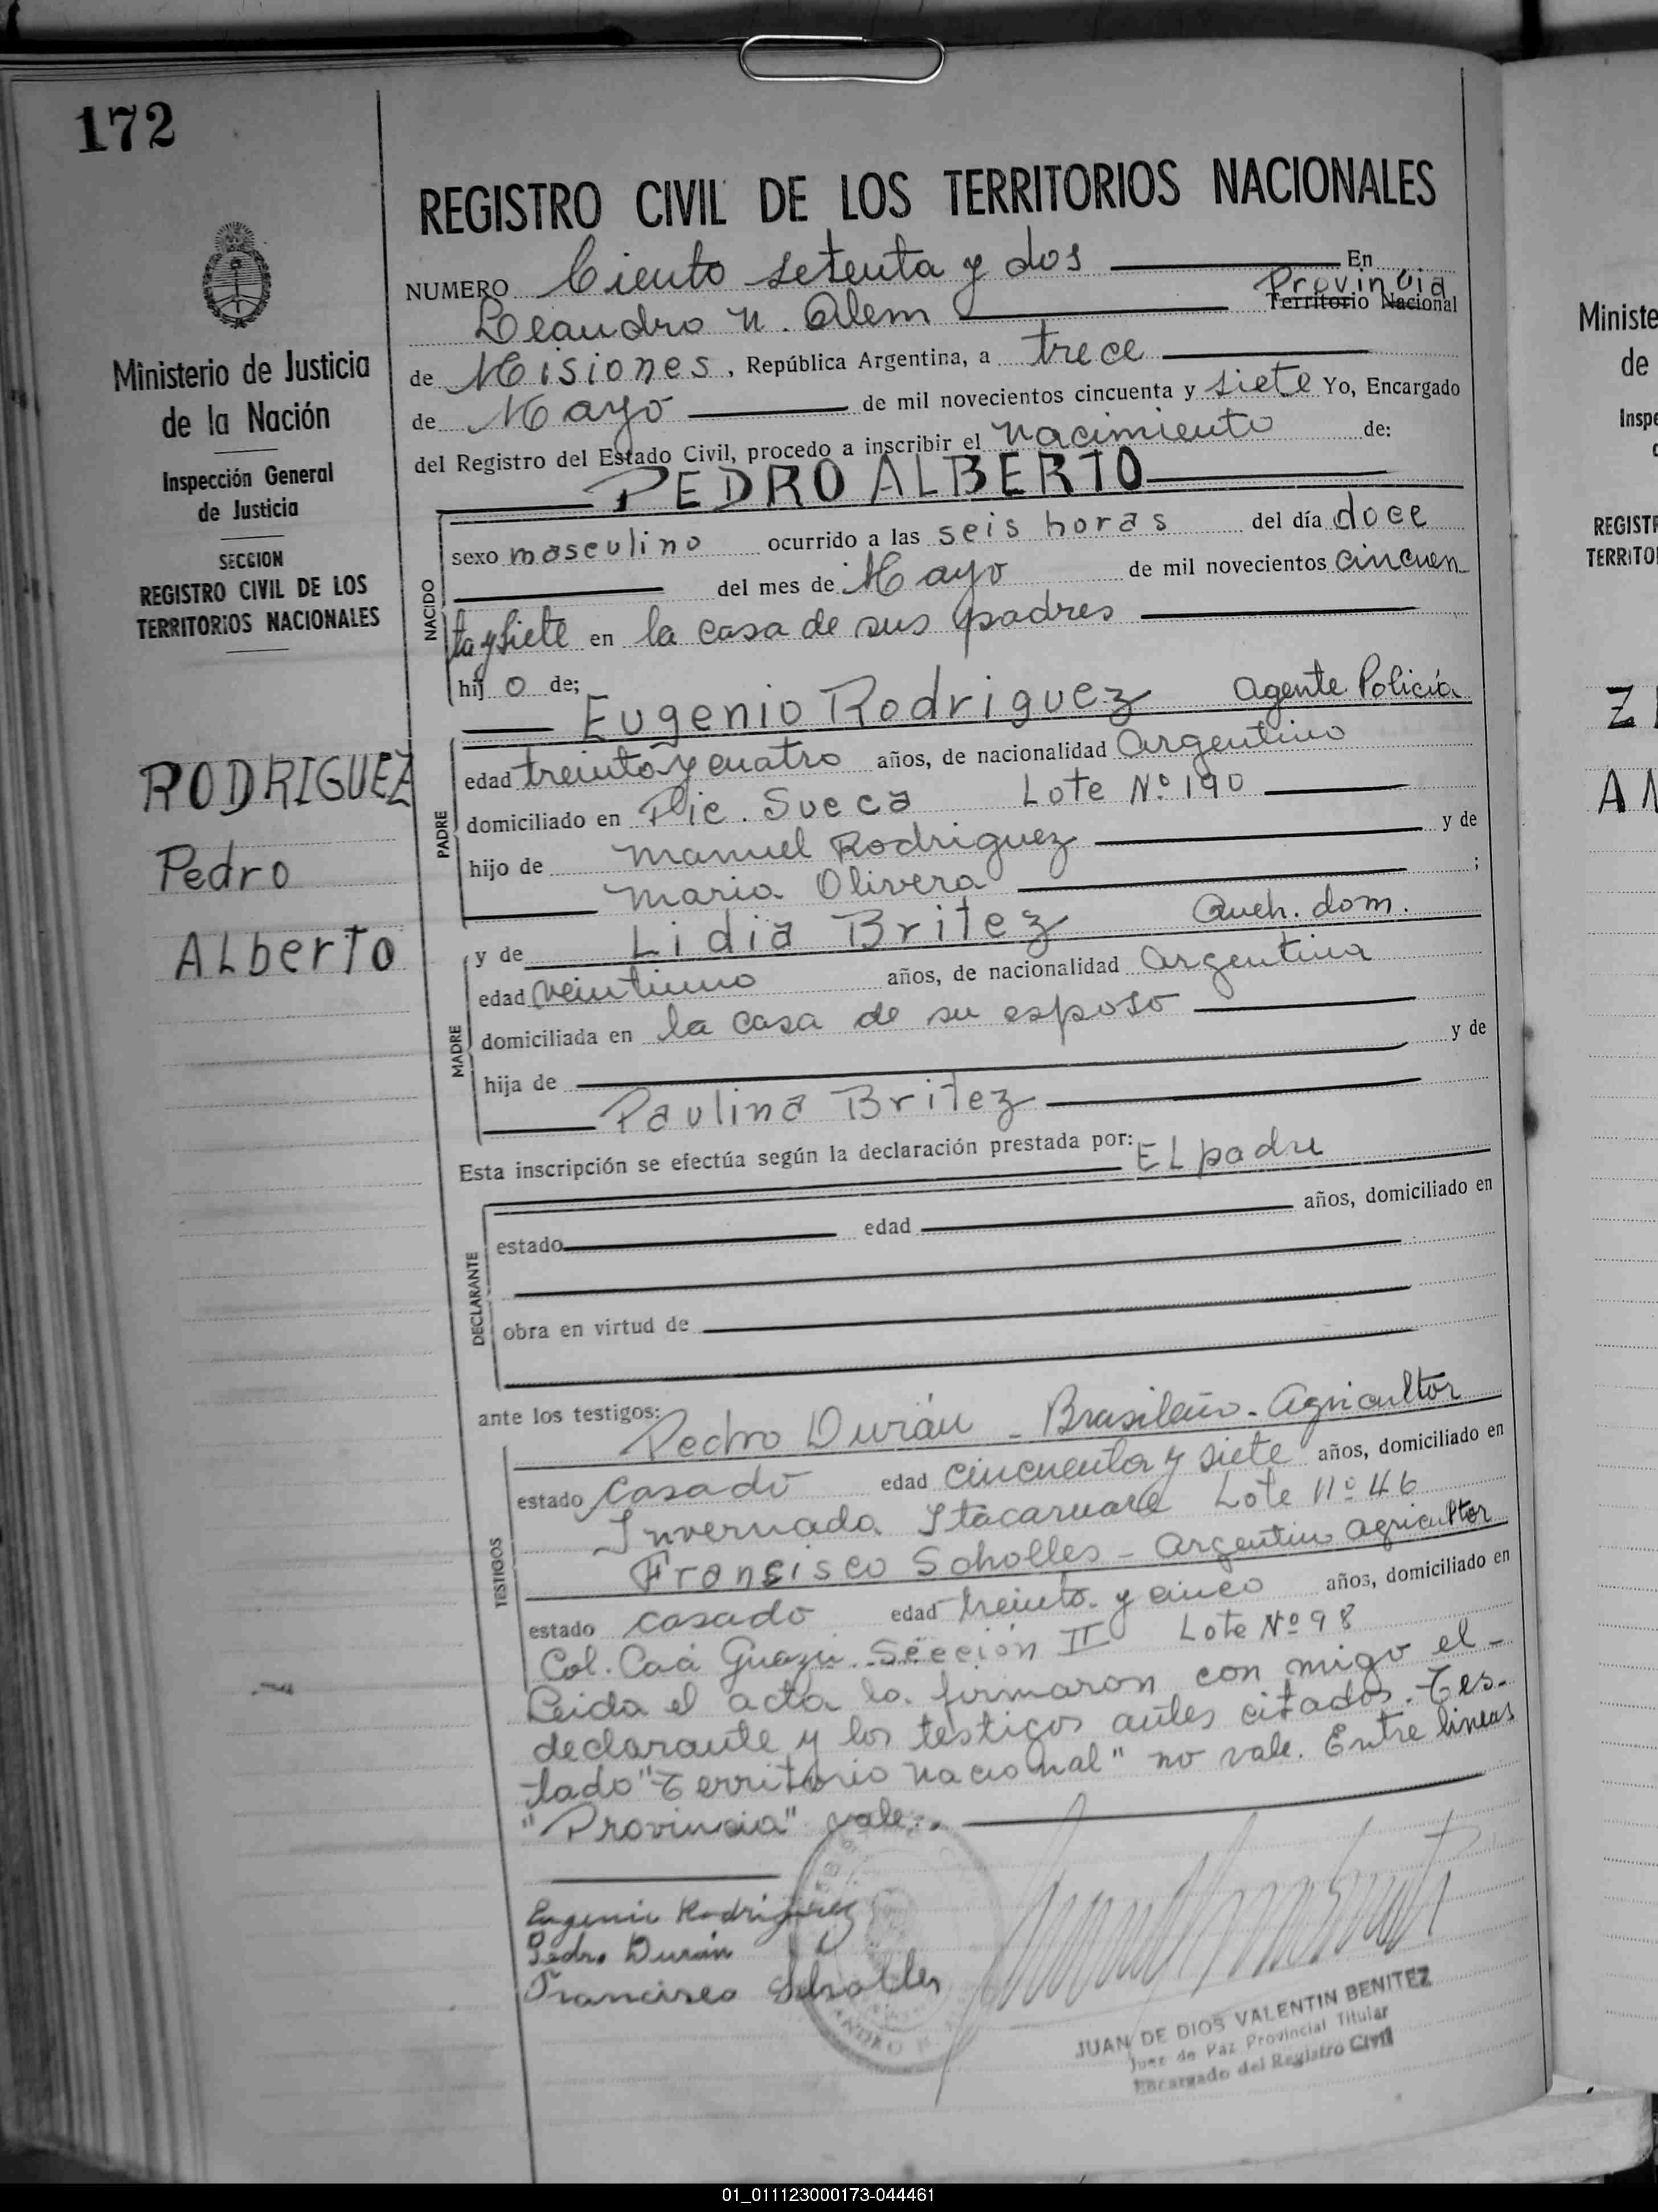 172
REGISTRO CIVIL DE LOS TERRITORIOS NACIONALES
NUMERO Ciento setenta y dos En
Provincia
Leandro N. Alem Territorio Nacional
de Misiones, República Argentina, a trece
de Mayo de mil novecientos cincuenta y siete Yo, Encargado
del Registro del Estado Civil, procedo a inscribir el nacimiento de:
PEDRO ALBERTO
NACIDO
sexo masculino ocurrido a las seis horas del día doce
del mes de Mayo de mil novecientos cincuen
ta y siete en la casa de sus padres
hijo de;
Eugenio Rodriguez Agente Policía
PADRE
edad treinta y cuatro años, de nacionalidad Argentino
domiciliado en Pic. Sueca Lote Nº 190
hijo de Manuel Rodriguez y de
Maria Olivera ;
y de Lidia Britez Queh. dom.
MADRE
edad veintiuno años, de nacionalidad Argentina
domiciliada en la casa de su esposo
hija de y de
Paulina Britez
Esta inscripción se efectúa según la declaración prestada por: EL padre
DECLARANTE
estado edad años, domiciliado en
obra en virtud de
ante los testigos: Pedro Durán - Brasileño - Agricultor
TESTIGOS
estado casado edad cincuenta y siete años, domiciliado en
Invernada Itacaruare Lote Nº 46
Francisco Scholles - Argentino Agricultor
estado casado edad treinta y cinco años, domiciliado en
Col. Caá Guazú Sección II Lote Nº 98
Leida el acta la firmaron con migo el -
declarante y los testigos antes citados. Tes-
tado "Territorio Nacional" no vale. Entre lineas
"Provincia" vale.
Eugenio Rodriguez
Pedro Durán
Francisco Scholles
JUAN DE DIOS VALENTIN BENITEZ
Juez de Paz Provincial Titular
Encargado del Registro Civil
Ministerio de Justicia
de la Nación
Inspección General
de Justicia
SECCION
REGISTRO CIVIL DE LOS
TERRITORIOS NACIONALES
RODRIGUEZ
Pedro
ALberto
Ministe
de
Inspe
REGIST
TERRITO
01_011123000173-044461